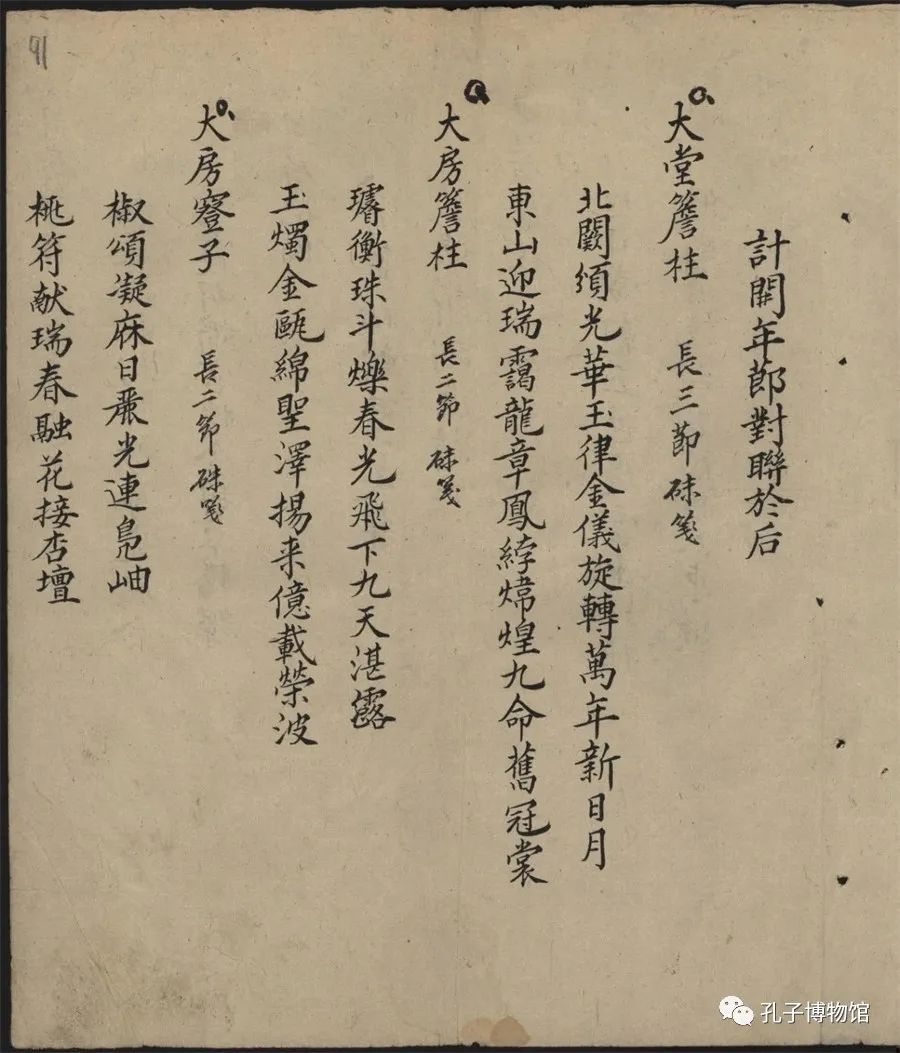 計開年節對聯於后
大堂簷柱 長三節 硃箋
北闕須光華玉律金儀旋轉萬年新日月
東山迎瑞靄龍章鳳綍煒煌九命舊冠裳
大房簷柱 長二節 硃箋
璿衡珠斗爍春光飛下九天湛露
玉燭金甌綿聖澤揚来億載榮波
大房 子 長二節 硃箋
椒頌凝庥日麗光連鳧岫
桃符献瑞春融花接杏壇
91
孔子博物馆